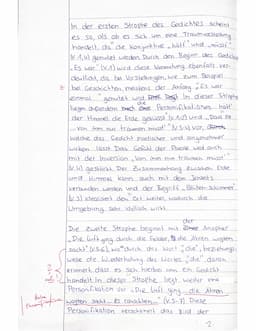 In der ersten Strophe des Gedichtes scheint
es so, als ob es sich um eine Traumvorstellung
handelt, da die Konjunktive „hätt'" und „müsst'"
(V.1,4) genutzt werden. Durch den Beginn des Gedichtes
„Es war" (V.1) wird diese Vermutung ebenfalls ver-
deutlicht, da bei Vorstellungen, wie zum Beispiel
bei Geschichten, meistens der Anfang „Es war
einmal" genutzt wird. In dieser Strophe
liegen außerdem die Personifikationen „hätt'
der Himmel die Erde geküsst" (V.1,2) und „Dass sie
von ihm nun träumen müsst'" (V.3,4) vor,
welche das Gedicht poetischer und
wirken lässt. Das Gefühl der Poesie wird auch
mit der Inversion „Von ihm nun träumen müsst'"
(V.4) gestärkt. Der Zusammenhang zwischen Erde
und Himmel kann auch mit dem Jenseits
verbunden werden und der Begriff „Blüten-Schimmer"
(V.3) idealisiert den Ort weiter, wodurch die
Umgebung sehr idyllisch wirkt.
Die zweite Strophe beginnt mit der Anapher
„Die Luft ging durch die Felder, die Ähren wogten
sacht" (V.5,6), wo durch das Wort „die", beziehungs-
weise die Wiederholung des Wortes „die" daran
erinnert, dass es sich hierbei um ein Gedicht
handelt. In dieser Strophe liegt wieder eine
Personifikation vor „Die Luft ging... die Ähren
wogten sacht... Es rauschten..." (V.5-7). Diese
Personifikation verschönert das Bild der
keine
Personifikation
2